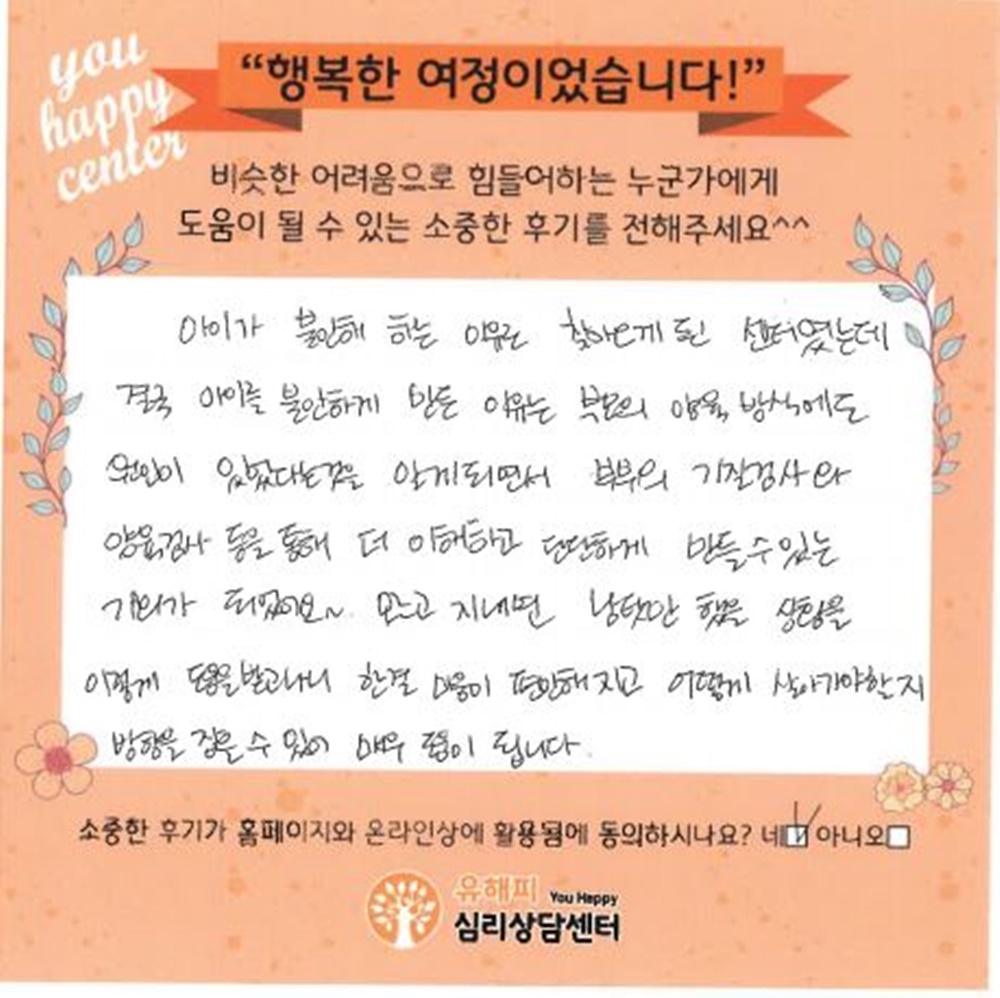 you
happy
center
“행복한 여정이었습니다!”
비슷한 어려움으로 힘들어하는 누군가에게
도움이 될 수 있는 소중한 후기를 전해주세요^^
아이가 불안해 하는 이유로 찾아오게 된 센터였는데
결국 아이를 불안하게 만든 이유는 부모의 양육 방식에도
원인이 있었다는것을 알게되면서 부부의 기질검사와
양육검사 등을 통해 더 이해하고 단단하게 만들수있는
기회가 되었어요~. 모르고 지내면 낭탓만 했을 상황을
이렇게 도움을받고나니 한결 마음이 편안해지고 어떻게 살아가야할지
방향을 잡을 수 있어 매우 도움이 됩니다.
소중한 후기가 홈페이지와 온라인상에 활용됨에 동의하시나요? 네 아니오
유해피 You Happy
심리상담센터